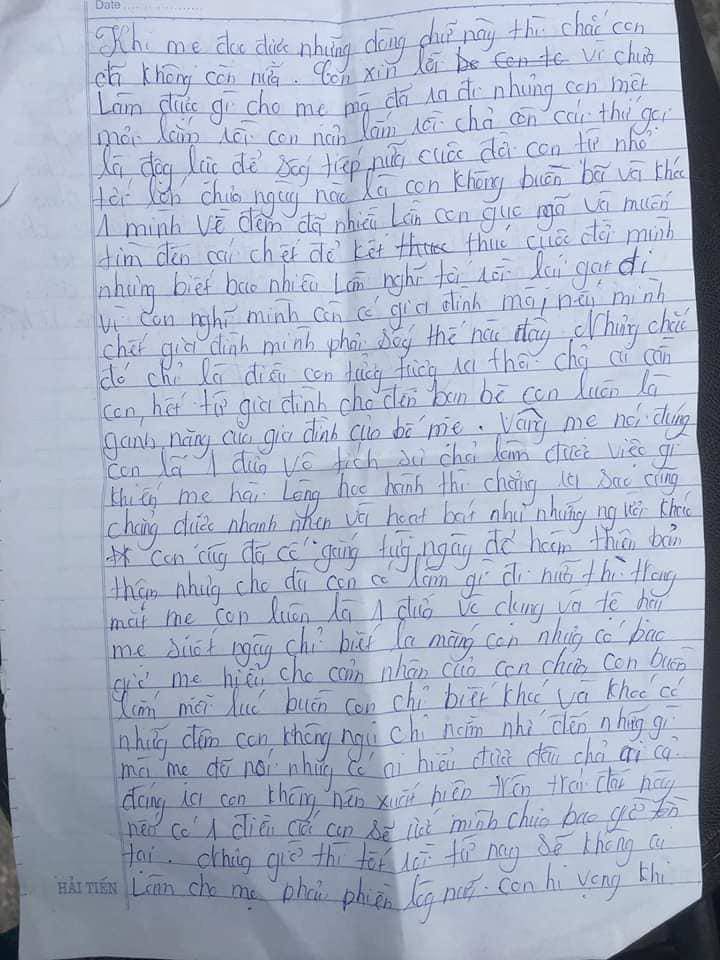 Date
Khi mẹ đọc được những dòng chữ này thì chắc con
đã không còn nữa. Con xin lỗi vì chưa
làm được gì cho mẹ mà đã ra đi nhưng con mệt
mỏi lắm rồi con nản lắm rồi chả còn cái thứ gọi
là động lực để sốg tiếp nữa cuộc đời con từ nhỏ
tới lớn chưa ngày nào là con không buồn bã và khóc
1 mình về đêm đã nhiều lần con gục ngã và muốn
tìm đến cái chết để kết thúc cuộc đời mình
nhưng biết bao nhiêu lần nghĩ tới rồi lại gạt đi
vì con nghĩ mình còn có gia đình mà, nếu mình
chết gia đình mình phải sốg thế nào đây. Nhưng chắc
đó chỉ là điều con tưởng tượng ra thôi chả ai cần
con, hết từ gia đình cho đến bạn bè con luôn là
gánh nặng của gia đình của bố mẹ. Vâng mẹ nói đúng
con là 1 đứa vô tích sự chả làm được việc gì
khiến mẹ hài lòng học hành thì chẳng ra sao cũng
chẳng được nhanh nhẹn và hoạt bát như những người khác
con cũg đã cố gắng từg ngày để hoàn thiện bản
thân nhưg cho dù con có làm gì đi nữa thì trong
mắt mẹ con luôn là 1 đứa vô dụng và tệ hại
mẹ suốt ngày chỉ biết la mắng con nhưg có bao
giờ mẹ hiểu cho cảm nhận của con chưa con buồn
lắm mỗi lúc buồn con chỉ biết khóc và khóc có
nhữg đêm con không ngủ chỉ nằm nhớ đến nhữg gì
mà mẹ đã nói nhưg có ai hiểu được đâu chả ai cả
đáng ra con không nên xuất hiện trên trái đất này
nếu có 1 điều ước con sẽ ước mình chưa bao giờ tồn
tại. Nhưg giờ thì tốt rồi từ nay sẽ không ai
làm cho mẹ phải phiền lòg nữa. Con hi vọng khi
HẢI TIẾN